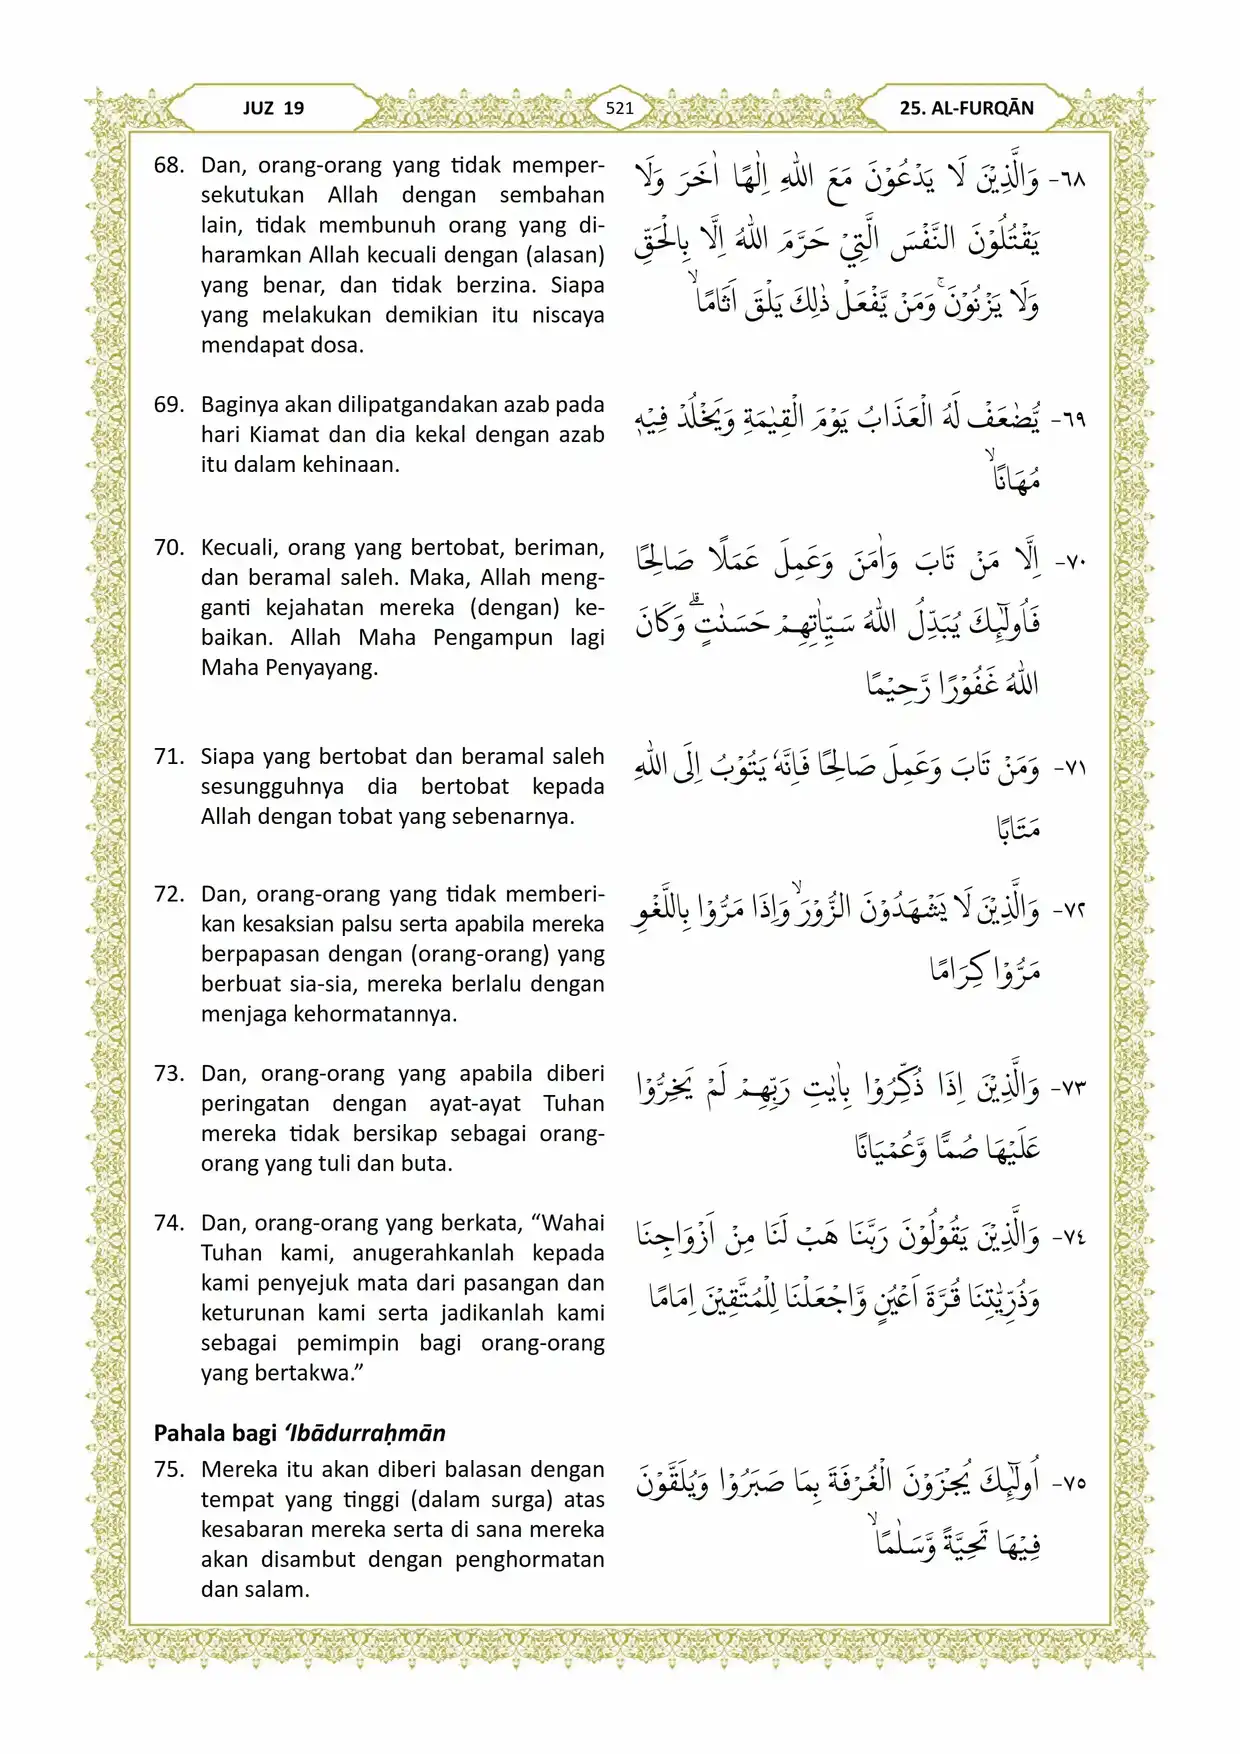 JUZ 19
521
25. AL-FURQĀN
68. Dan, orang-orang yang tidak memper-
sekutukan Allah dengan sembahan
lain, tidak membunuh orang yang di-
haramkan Allah kecuali dengan (alasan)
yang benar, dan tidak berzina. Siapa
yang melakukan demikian itu niscaya
mendapat dosa.
٦٨- وَالَّذِيْنَ لَا يَدْعُوْنَ مَعَ اللّٰهِ اِلٰهًا اٰخَرَ وَلَا
يَقْتُلُوْنَ النَّفْسَ الَّتِيْ حَرَّمَ اللّٰهُ اِلَّا بِالْحَقِّ
وَلَا يَزْنُوْنَۚ وَمَنْ يَّفْعَلْ ذٰلِكَ يَلْقَ اَثَامًاۙ
69. Baginya akan dilipatgandakan azab pada
hari Kiamat dan dia kekal dengan azab
itu dalam kehinaan.
٦٩- يُّضٰعَفْ لَهُ الْعَذَابُ يَوْمَ الْقِيٰمَةِ وَيَخْلُدْ فِيْهٖ
مُهَانًاۙ
70. Kecuali, orang yang bertobat, beriman,
dan beramal saleh. Maka, Allah meng-
ganti kejahatan mereka (dengan) ke-
baikan. Allah Maha Pengampun lagi
Maha Penyayang.
٧٠- اِلَّا مَنْ تَابَ وَاٰمَنَ وَعَمِلَ عَمَلًا صَالِحًا
فَاُولٰۤىِٕكَ يُبَدِّلُ اللّٰهُ سَيِّاٰتِهِمْ حَسَنٰتٍۗ وَكَانَ
اللّٰهُ غَفُوْرًا رَّحِيْمًا
71. Siapa yang bertobat dan beramal saleh
sesungguhnya dia bertobat kepada
Allah dengan tobat yang sebenarnya.
٧١- وَمَنْ تَابَ وَعَمِلَ صَالِحًا فَاِنَّهٗ يَتُوْبُ اِلَى اللّٰهِ
مَتَابًا
72. Dan, orang-orang yang tidak memberi-
kan kesaksian palsu serta apabila mereka
berpapasan dengan (orang-orang) yang
berbuat sia-sia, mereka berlalu dengan
menjaga kehormatannya.
٧٢- وَالَّذِيْنَ لَا يَشْهَدُوْنَ الزُّوْرَۙ وَاِذَا مَرُّوْا بِاللَّغْوِ
مَرُّوْا كِرَامًا
73. Dan, orang-orang yang apabila diberi
peringatan dengan ayat-ayat Tuhan
mereka tidak bersikap sebagai orang-
orang yang tuli dan buta.
٧٣- وَالَّذِيْنَ اِذَا ذُكِّرُوْا بِاٰيٰتِ رَبِّهِمْ لَمْ يَخِرُّوْا
عَلَيْهَا صُمًّا وَّعُمْيَانًا
74. Dan, orang-orang yang berkata, “Wahai
Tuhan kami, anugerahkanlah kepada
kami penyejuk mata dari pasangan dan
keturunan kami serta jadikanlah kami
sebagai pemimpin bagi orang-orang
yang bertakwa.”
٧٤- وَالَّذِيْنَ يَقُوْلُوْنَ رَبَّنَا هَبْ لَنَا مِنْ اَزْوَاجِنَا
وَذُرِّيّٰتِنَا قُرَّةَ اَعْيُنٍ وَّاجْعَلْنَا لِلْمُتَّقِيْنَ اِمَامًا
Pahala bagi ‘Ibādurraḥmān
75. Mereka itu akan diberi balasan dengan
tempat yang tinggi (dalam surga) atas
kesabaran mereka serta di sana mereka
akan disambut dengan penghormatan
dan salam.
٧٥- اُولٰۤىِٕكَ يُجْزَوْنَ الْغُرْفَةَ بِمَا صَبَرُوْا وَيُلَقَّوْنَ
فِيْهَا تَحِيَّةً وَّسَلٰمًاۙ